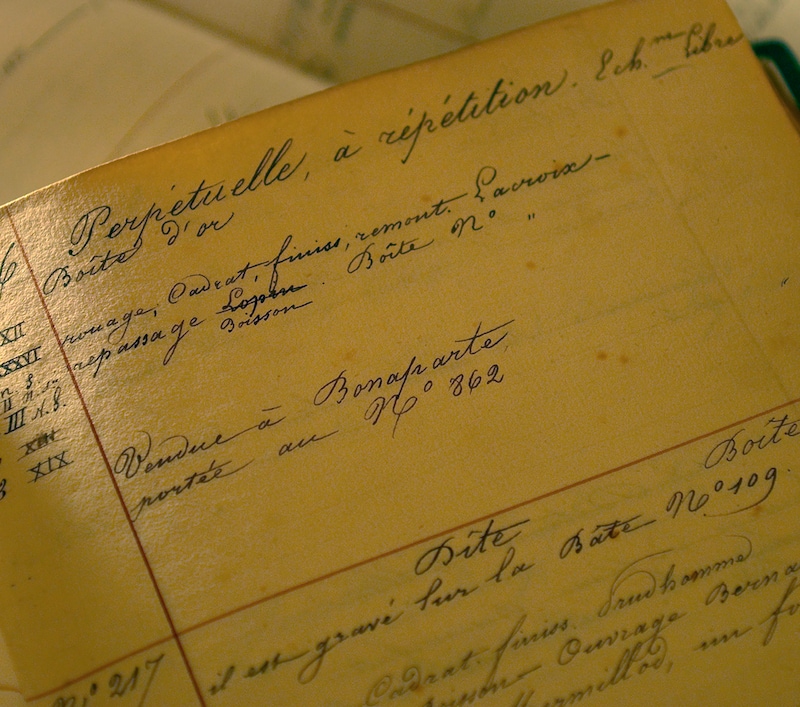 Perpétuelle, à répétition. Ech.me Libre
Boîte d'or
rouage, Cadrat, finiss, remont. Lacroix-
repassage Lopin Boîte N° "
Boisson
XII
XXXVI
III
XIII
XIX
Vendue à Bonaparte
portée au N° 862
Boîte
Dite
il est gravé sur la Bâte N° 109.
N° 217
Cadrat. finiss. Prudhomme
Boisson Ouvrage Berna
un fo